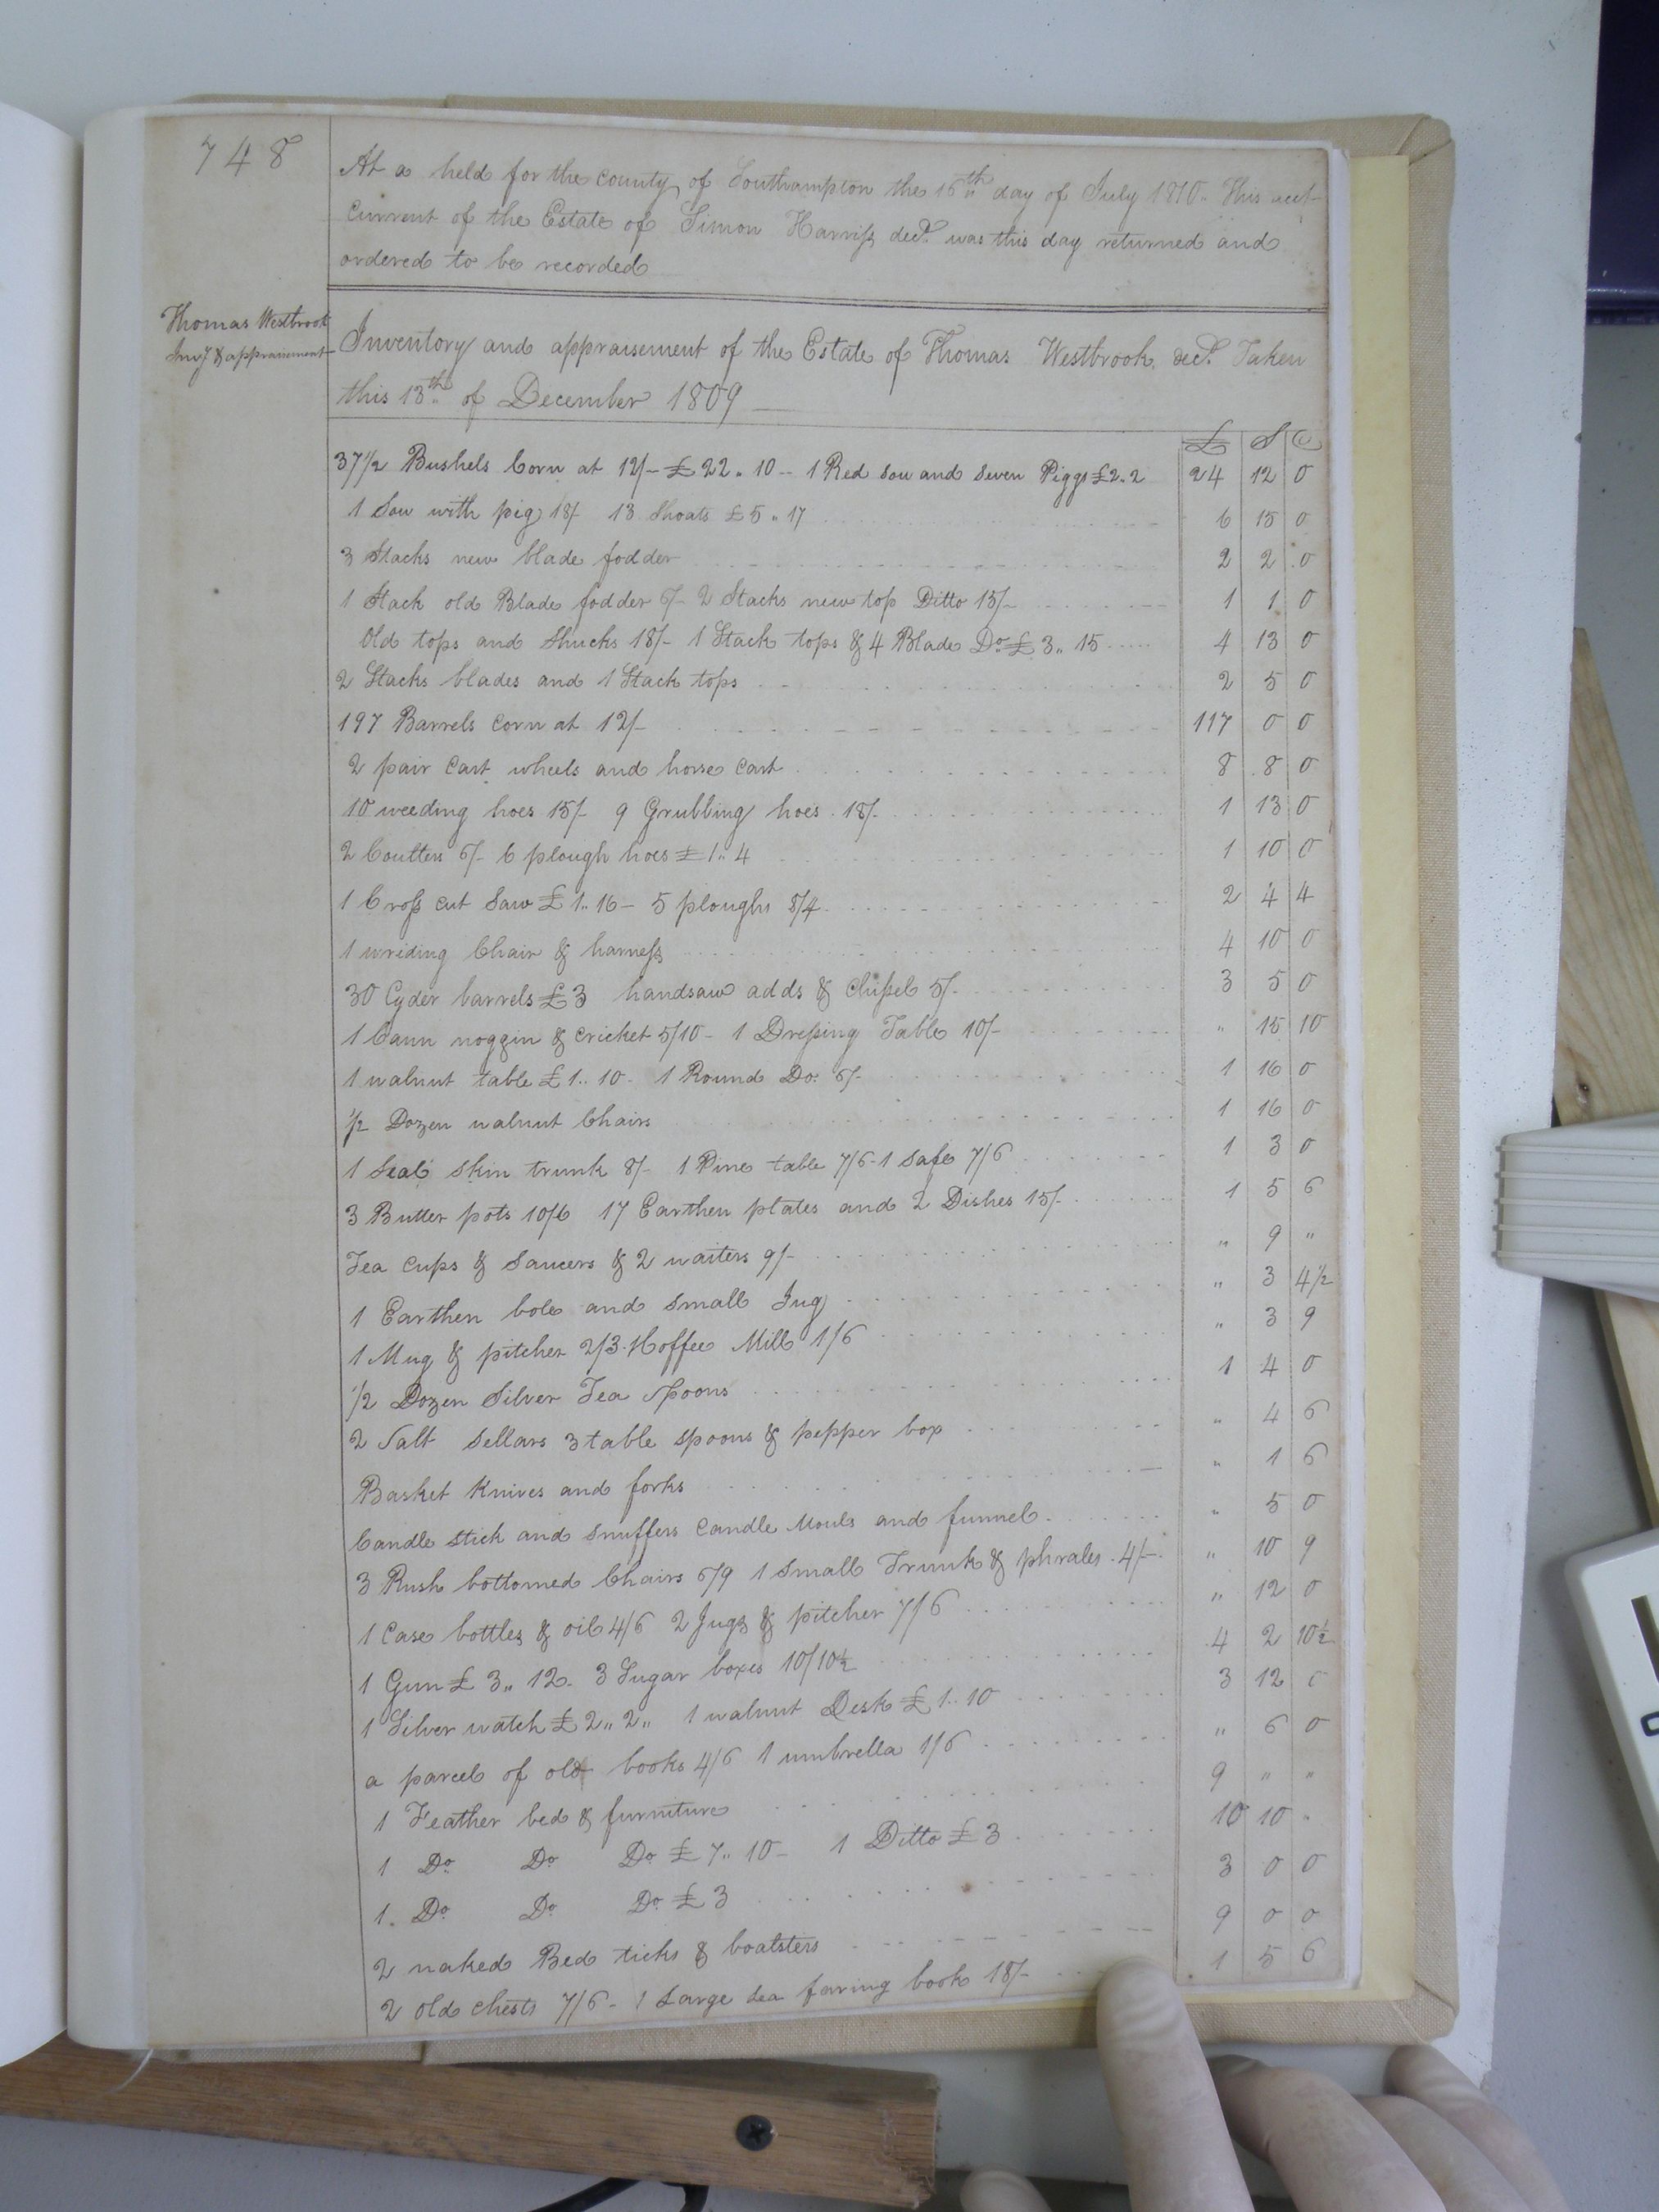 748
At a held for the county of Southampton the 16th day of July 1810. This acct
Current of the Estate of Simon Harriss decd. was this day returned and
ordered to be recorded
Thomas Westbrook
Invy & appraisement
Inventory and appraisement of the Estate of Thomas Westbrook decd. Taken
this 13th of December 1809
£ S D
37 1/2 Bushels Corn at 12/- £22.. 10 - 1 Red Sow and Seven Piggs £2.. 2 24 12 0
1 Sow with pig 18/- 13 Shoats £5.. 17 6 15 0
3 Stacks new blade fodder 2 2 0
1 Stack old Blade fodder 6/- 2 Stacks new top Ditto 15/- 1 1 0
Old tops and Shucks 18/- 1 Stack tops & 4 Blade Do. £3.. 15 4 13 0
2 Stacks blades and 1 Stack tops 2 5 0
197 Barrels Corn at 12/- 117 0 0
2 pair Cart wheels and horse Cart 8 8 0
10 weeding hoes 15/- 9 Grubbing hoes 18/- 1 13 0
2 Coulters 6/- 6 plough hoes £1.. 4 1 10 0
1 Cross cut Saw £1.. 16 - 5 ploughs 8/4 2 4 4
1 wriding Chair & harness 4 10 0
30 Cyder barrels £3 handsaw adds & Chissel 5/- 3 5 0
1 Cann noggin & cricket 5/10 - 1 Dressing Table 10/- " 15 10
1 walnut table £1.. 10 - 1 Round Do. 6/- 1 16 0
1/2 Dozen walnut Chairs 1 16 0
1 Seal skin trunk 8/- 1 Pine table 7/6 - 1 Safe 7/6 1 3 0
3 Butter pots 10/6 17 Earthen plates and 2 Dishes 15/- 1 5 6
Tea Cups & Saucers & 2 waiters 9/- " 9 "
1 Earthen bole and small Jug " 3 4 1/2
1 Mug & pitcher 2/3 Hoffee Mill 1/6 " 3 9
1/2 Dozen Silver Tea Spoons 1 4 0
2 Salt Sellars 3 table spoons & pepper box " 4 6
Basket Knives and forks " 1 6
Candle stick and snuffers Candle Mouls and funnel " 5 0
3 Rush bottomed Chairs 6/9 1 Small Trunk & phrales 4/- " 10 9
1 Case bottles & oil 4/6 2 Jugs & pitcher 7/6 " 12 0
1 Gun £3.. 12 - 3 Sugar boxes 10/10 1/2 4 2 10 1/2
1 Silver watch £2.. 2.. 1 walnut Desk £1.. 10 3 12 0
a parcel of old books 4/6 1 umbrella 1/6 " 6 0
1 Feather bed & furniture 9 " "
1 Do. Do. Do. £7.. 10 - 1 Ditto £3 10 10 "
1. Do. Do. Do. £3 3 0 0
2 naked Bed ticks & boalsters 9 0 0
2 old chests 7/6 - 1 Large Sea faring book 18/- 1 5 6